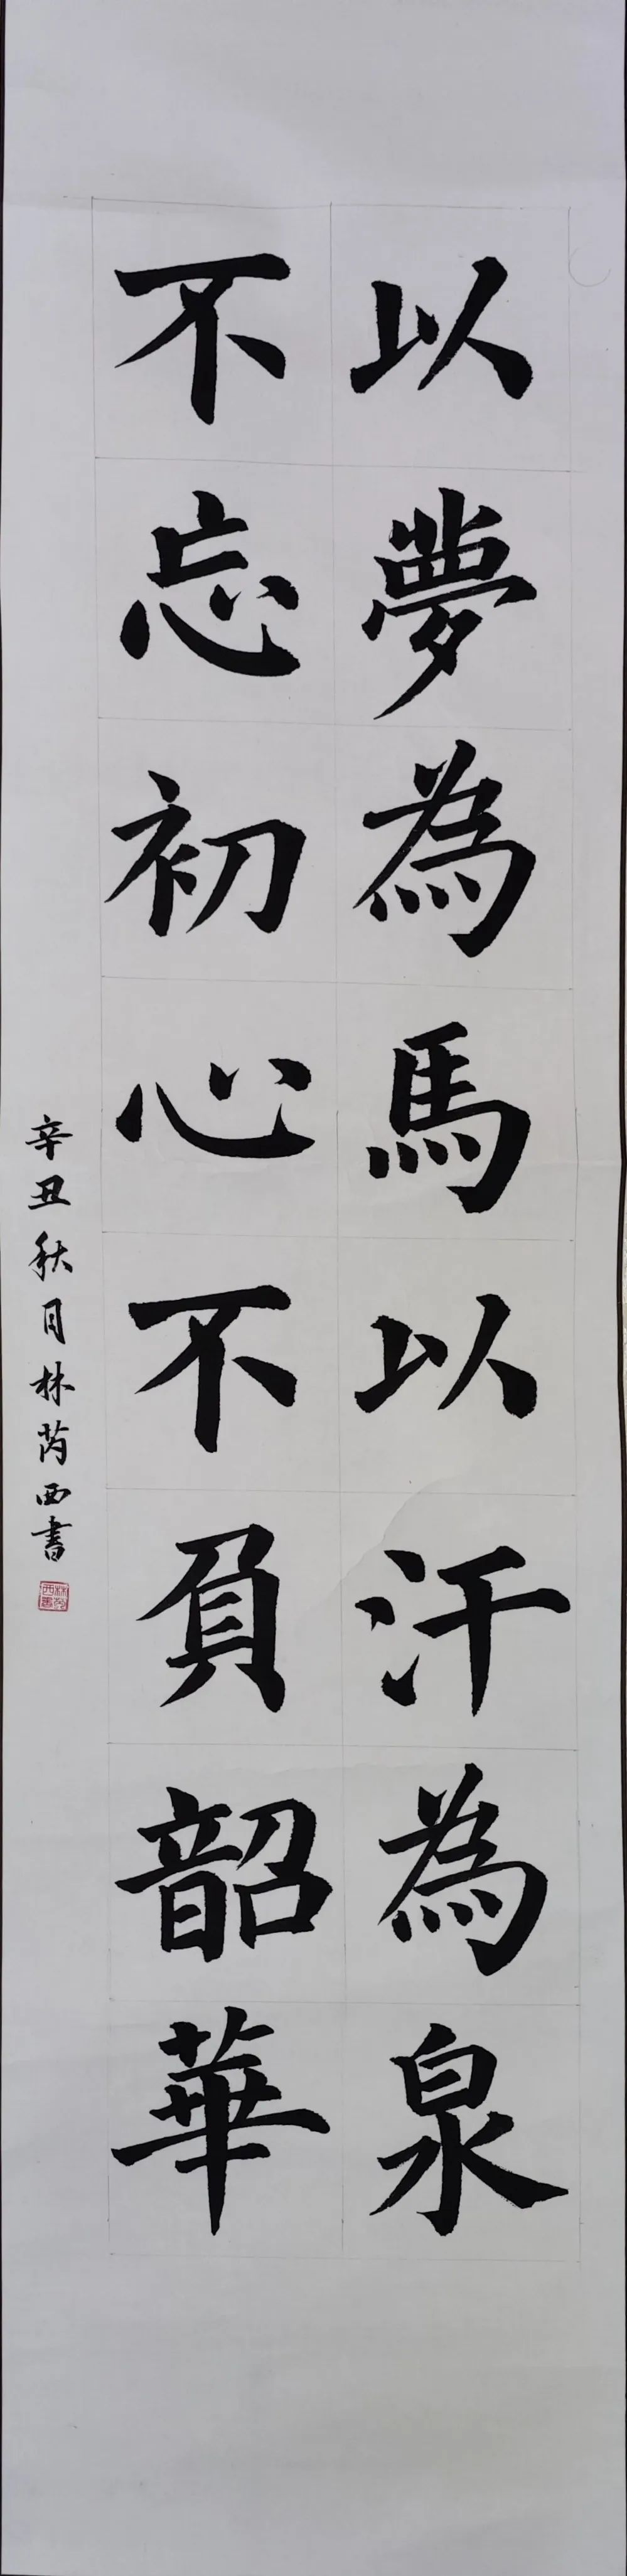 以夢為馬以汗為泉
不忘初心不負韶華
辛丑秋月林芮西書